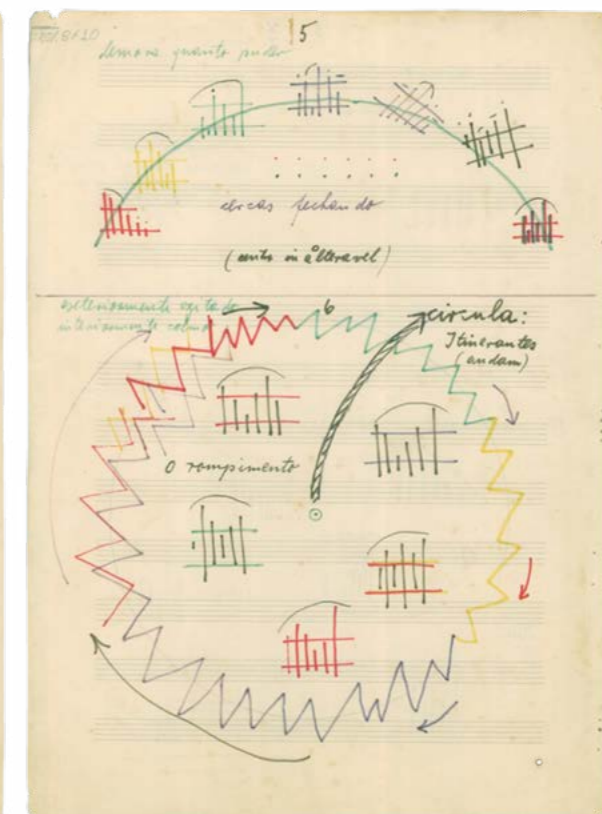 5
demora quanto puder
cercas fechando
(centro inålteravel)
exteriormente agitado
interiormente calmo
6
circula:
Itinerantes
(andam)
O rompimento